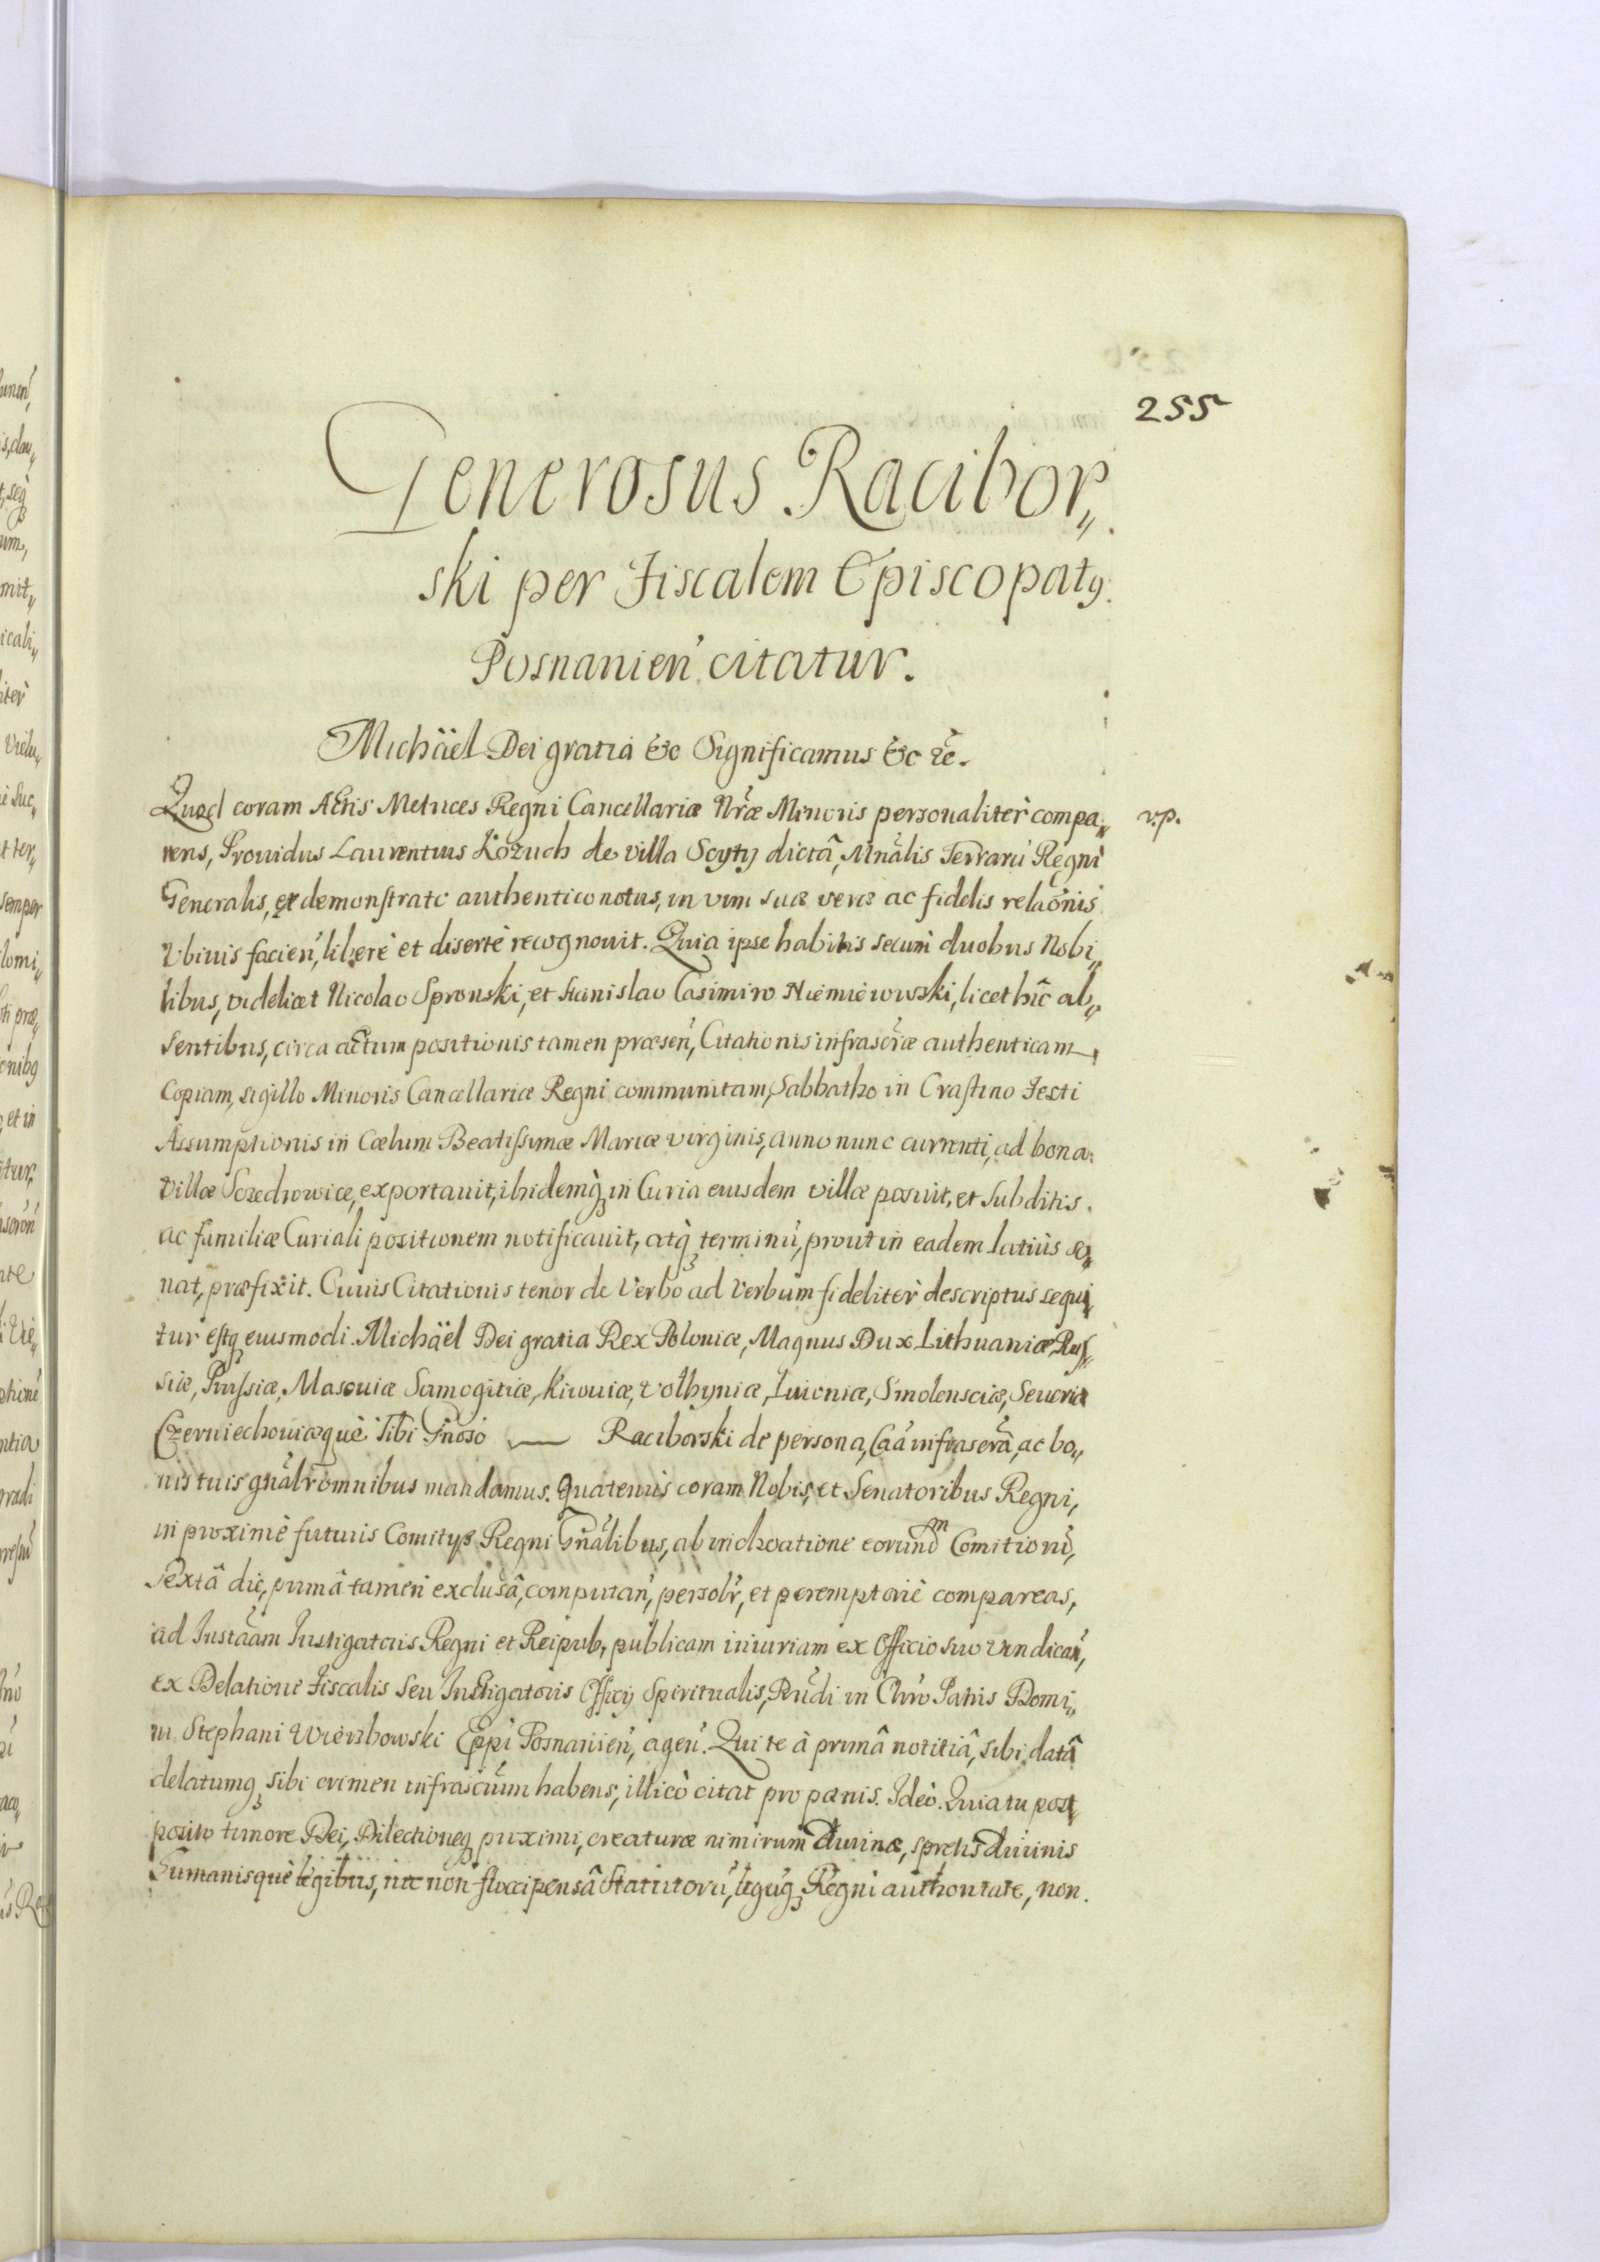 255
Generosus Racibor„
ski per Fiscalem Episcopatꝰ
Posnanień citatur.
Michäel Dei gratia &c Significamus &c &c.
Quod coram Actis Metrices Regni Cancellariæ Nr̃æ Minoris personaliter compa„ v.p.
rens, Prouidus Laurentius Kożuch de villa Scyty dictâ, Mnãlis Terrarũ Regni
Generalis, ex demonstrato authentico notus, in vim suæ veræ ac fidelis relaõnis
ibiuis facień, liberè et disertè recognouit. Quia ipse habitis secum duobus Nobi„
libus, videlicet Nicolao Spronski, et Stanislao Casimiro Niemieiowski, licet hîc ab„
sentibus, circa actum positionis tamen præseń, Citationis infrascr̃æ authenticam
Copiam, sigillo Minoris Cancellariæ Regni communitam, Sabbatho in Crastino Festi
Assumptionis in Cælum Beatissimæ Mariæ virginis, anno nunc currenti, ad bona
villæ Sczedrowice, exportauit, ibidemq̃ in Curia eiusdem villæ posuit, et subditis
ac familiæ Curiali positionem notificauit, atq̃ terminũ, prout in eadem latiùs so„
nat, præfixit. Cuius Citationis tenor de Verbo ad Verbum fideliter descriptus sequi„
tur estq̃ eiusmodi. Michäel Dei gratia Rex Poloniæ, Magnus Dux Lithuaniæ, Rus„
siæ, Prussiæ, Masouiæ Samogitiæ, Kiiouiæ, Volhyniæ, Liuoniæ, Smolensciæ, Seueriæ
Czerniechouiæquè Tibi Gñoso — Raciborski de persona, Caã infrascrã, ac bo„
nis tuis gnãlr̃ omnibus mandamus. Quatenus coram Nobis, et Senatoribus Regni,
in proximè futuris Comitijs Regni Gñãlibus, ab inchoatione eorundm Comitiorũ,
Sextâ die, primâ tamen exclusâ, computań, persolr̃, et peremptoriè compareas,
ad Instãam Instigatoris Regni et Reipub, publicam iniuriam ex Officio suo Vindicań,
ex Delatione Fiscalis seu Instigatoris Officij Spiritualis, Rũdi in Chr̃o Patris Domi„
ni Stephani Wierzbowski Ep̃pi Posnanień, ageń. Qui te à primâ notitiâ, sibi datâ
delatumq̃ sibi crimen infrascr̃um habens, illicò citat pro pænis. Ideò. Quia tu post„
posito timore Dei, Dilectioneq̃ proximi, creaturæ nimirum Diuinæ, spretis Diuinis
Humanisquè legibus, nec non floccipensâ Statutorũ, legũq̃ Regni authoritate, non